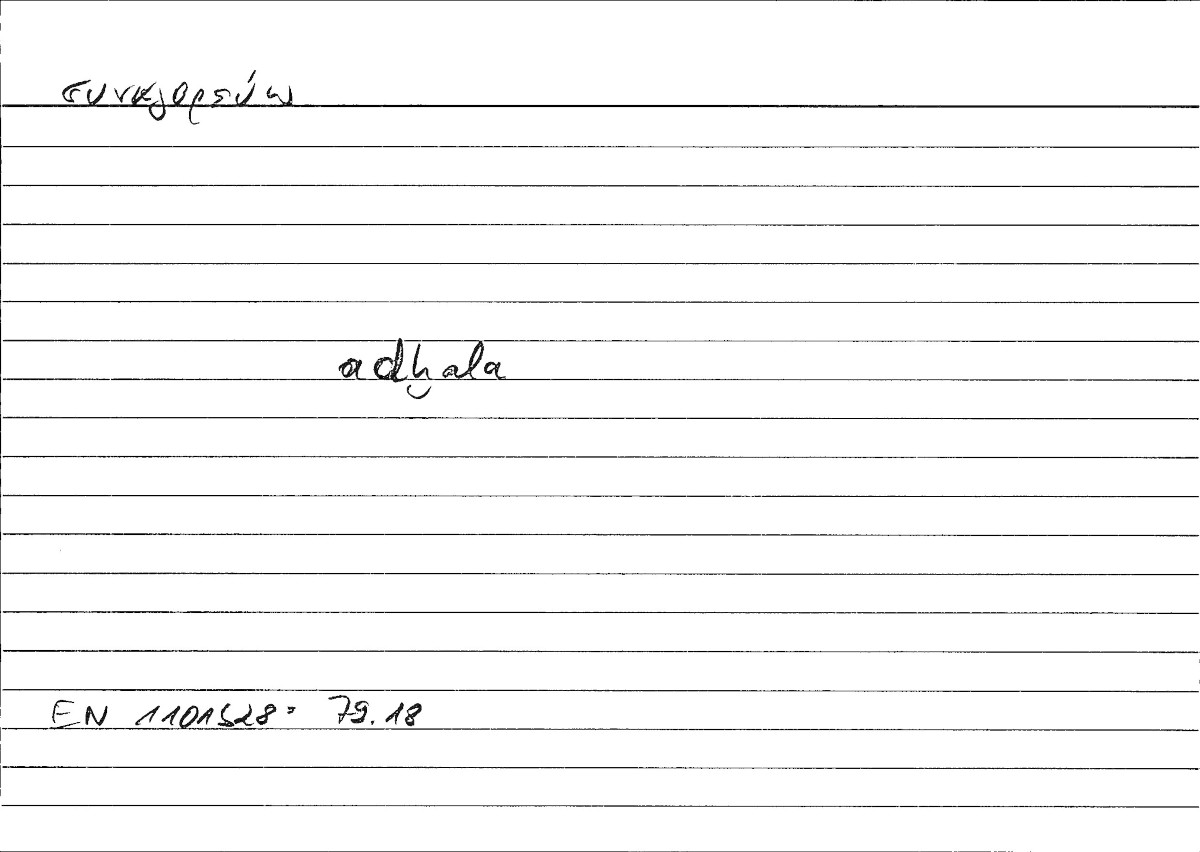 συναγορεύω
adḫala
EN 1101b28: 79.18